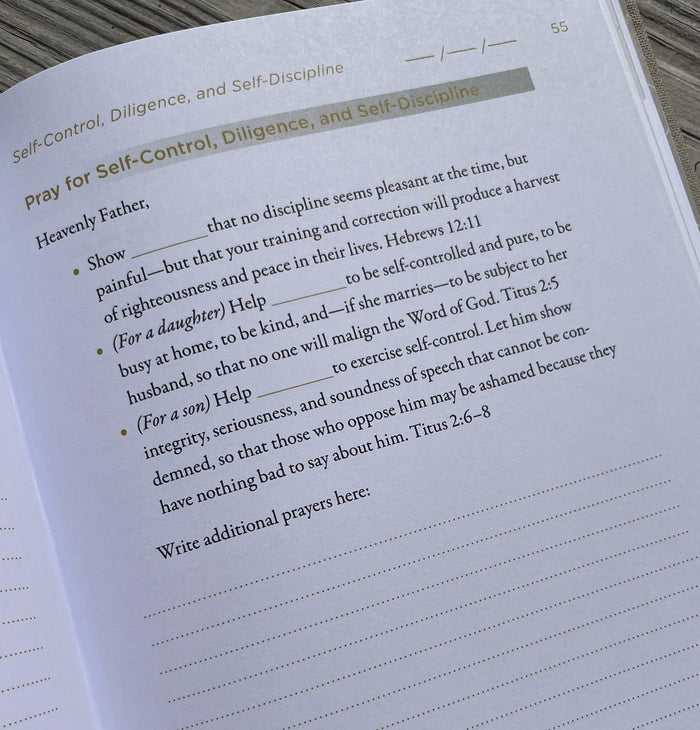 55
Self-Control, Diligence, and Self-Discipline
__ /__ /__
Pray for Self-Control, Diligence, and Self-Discipline
Heavenly Father,
• Show ________ that no discipline seems pleasant at the time, but
painful—but that your training and correction will produce a harvest
of righteousness and peace in their lives. Hebrews 12:11
• (For a daughter) Help ________ to be self-controlled and pure, to be
busy at home, to be kind, and—if she marries—to be subject to her
husband, so that no one will malign the Word of God. Titus 2:5
• (For a son) Help ________ to exercise self-control. Let him show
integrity, seriousness, and soundness of speech that cannot be con-
demned, so that those who oppose him may be ashamed because they
have nothing bad to say about him. Titus 2:6–8
Write additional prayers here: